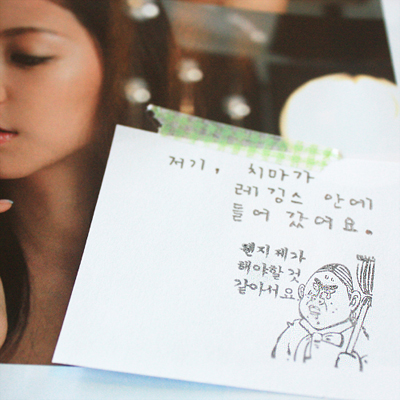 저기, 치마가
레깅스 안에
들어 갔어요.
왠지 제가
해야할것
같아서요